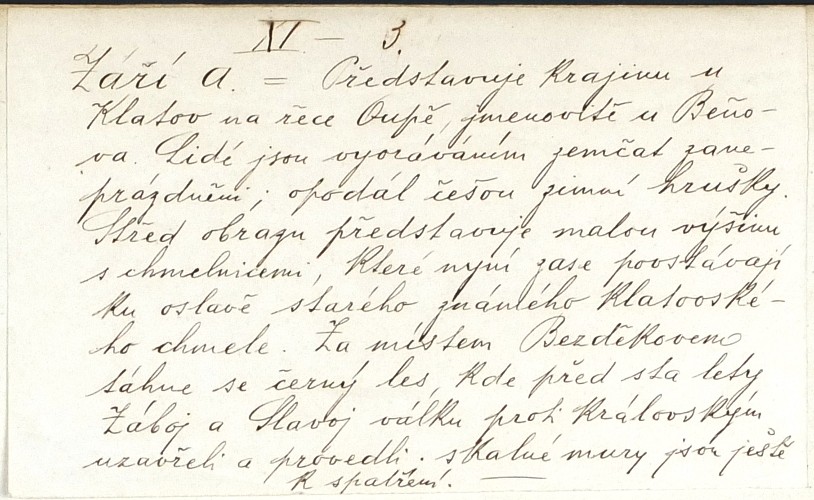 XI - 3.
Září a. = Představuje krajinu u
Klatov na řece Oupě, jmenovitě u Běňo-
va. Lidé jsou vyoráváním zemčat zane-
prázdněni; opodál češou zimní hrušky.
Střed obrazu představuje malou výšinu
s chmelnicemi, které nyní zase povstávají
ku oslavě starého známého klatovské-
ho chmele. Za místem Bezděkovem
táhne se černý les, kde před sta lety
Záboj a Slavoj válku proti královským
uzavřeli a provedli. skalné mury jsou ještě
k spatření.